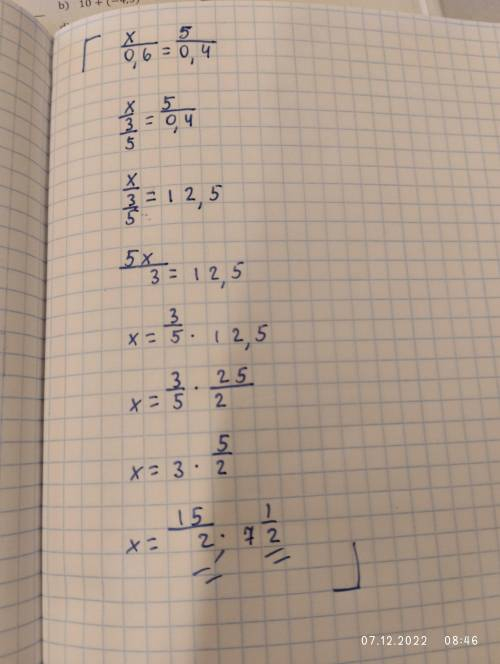 b) 10 + (−4,5)
x/0,6 = 5/0,4
x/(3/5) = 5/0,4
x/(3/5) = 12,5
5x/3 = 12,5
x = 3/5 · 12,5
x = 3/5 · 25/2
x = 3 · 5/2
x = 15/2; 7 1/2
07.12.2022 08:46